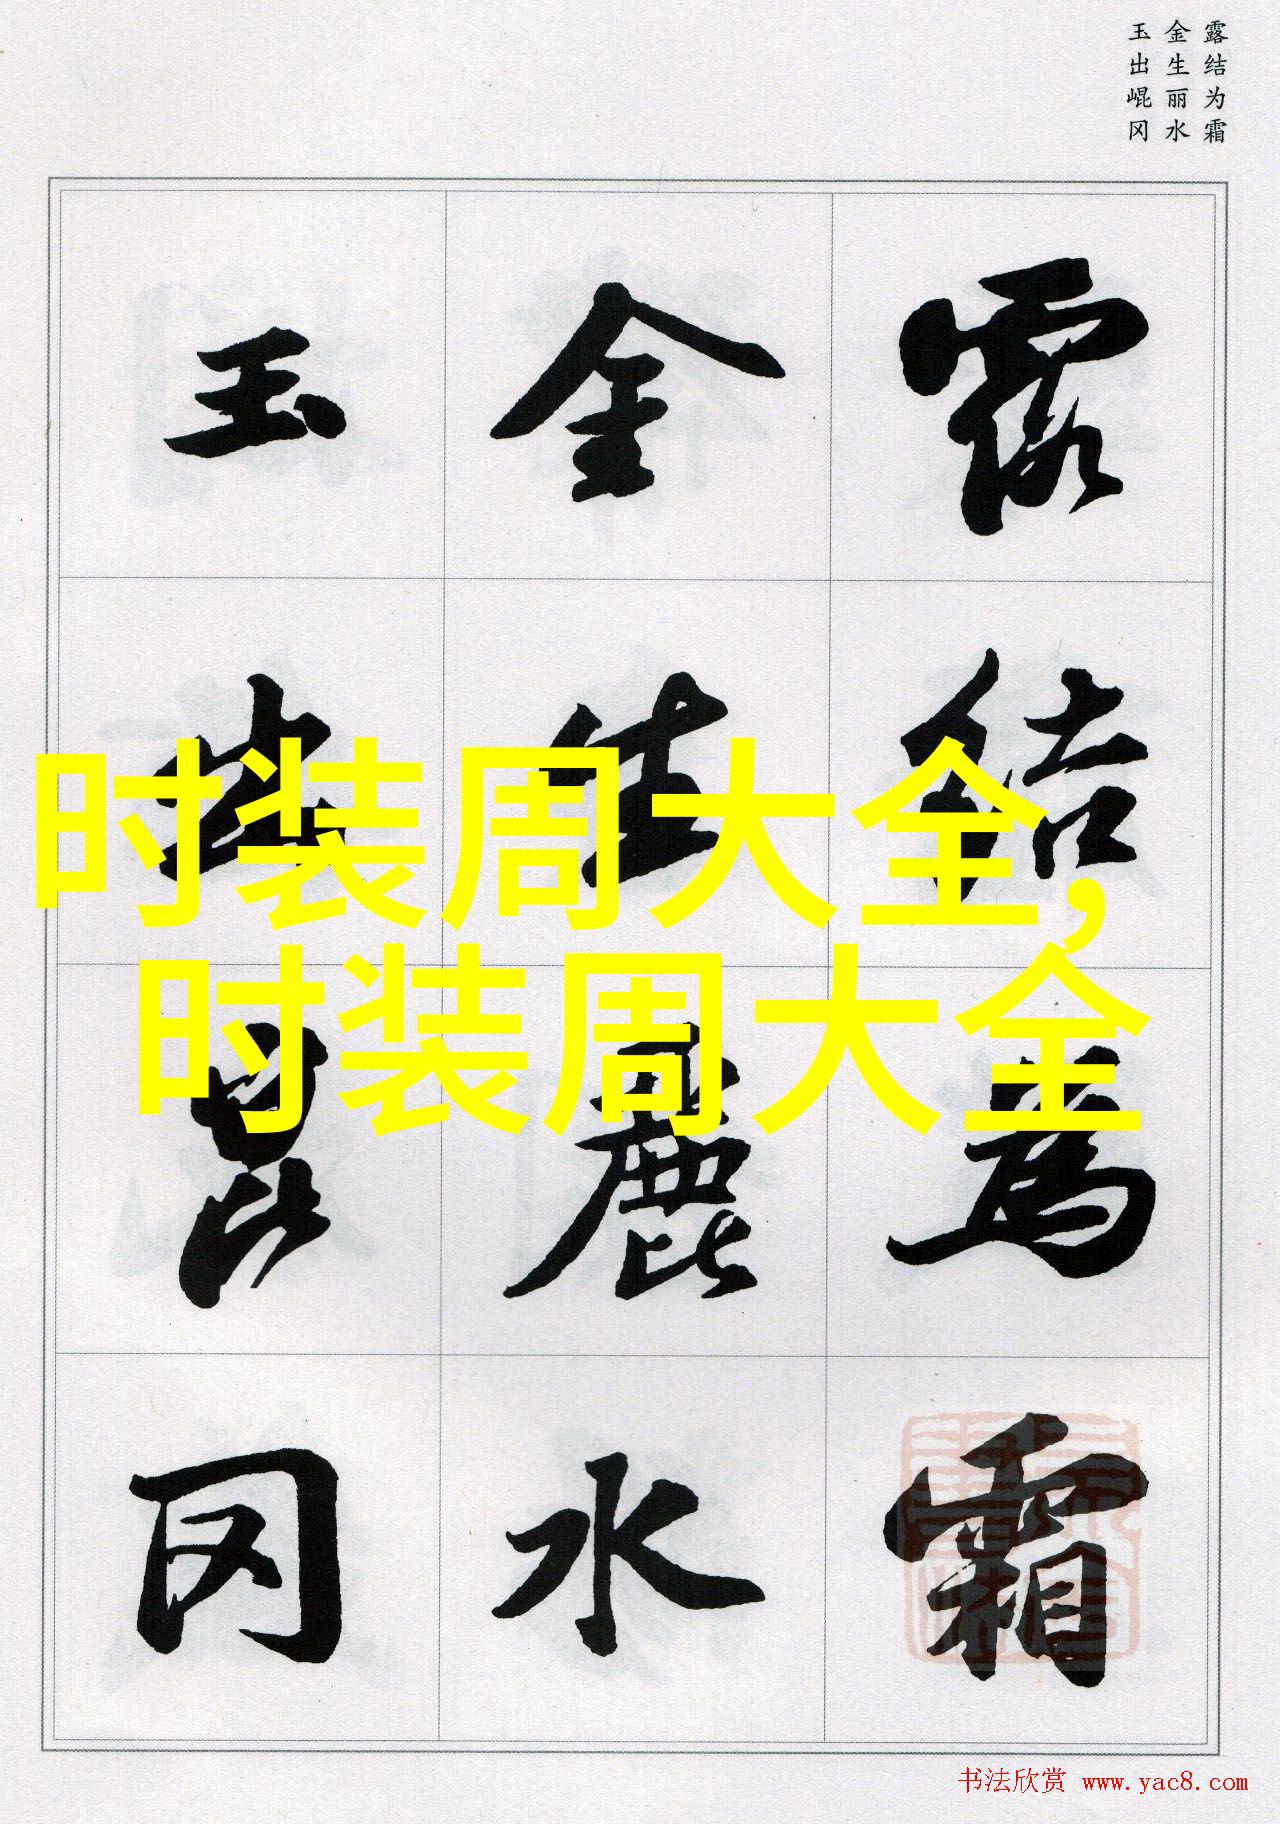 露结为霜
金生丽水
玉出崐冈
露結為霜
金生麗水
玉出崑冈
时装周大全,
时装周大全
书法欣赏 www.yac8.com